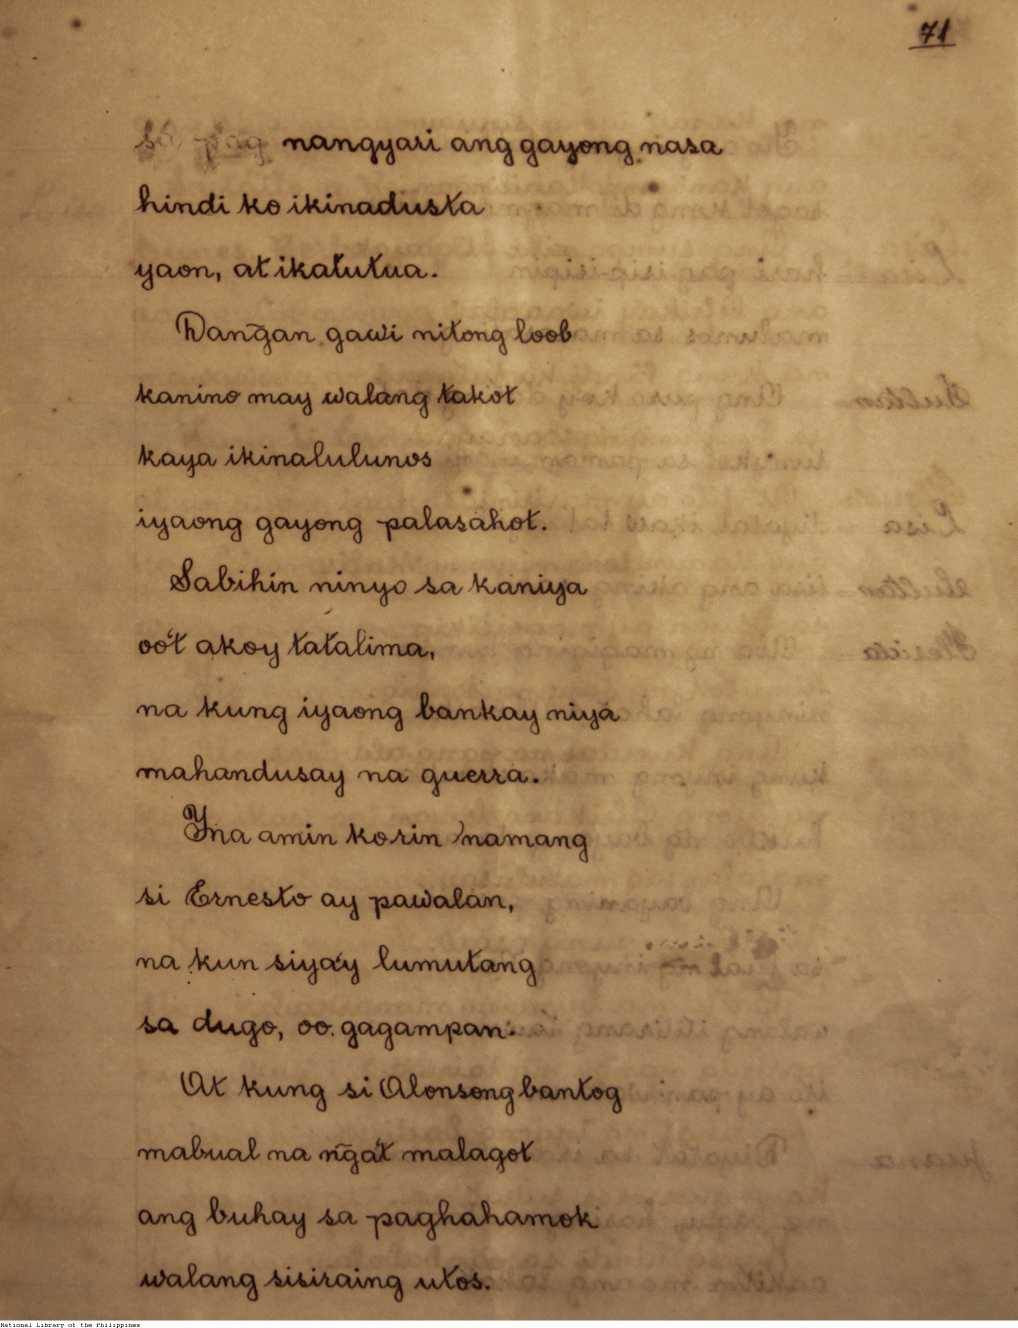 71
sa pag nangyari ang gayong nasa
hindi ko ikinadusta
yaon, at ikatutua.
Dang̃an gawi nitong loob
kanino may walang takot
kaya ikinalulunos
iyaong gayong palasahot.
Sabihin ninyo sa kaniya
oo't akoy tatalima,
na kung iyaong bankay niya
mahandusay na guerra.
Yna amin ko rin namang
si Ernesto ay pawalan,
na kun siya'y lumutang
sa dugo, oo. gagampan.
At kung si Alonsong bantog
mabual na ng̃a't malagot
ang buhay sa paghahamok
walang sisiraing utos.
National Library of the Philippines